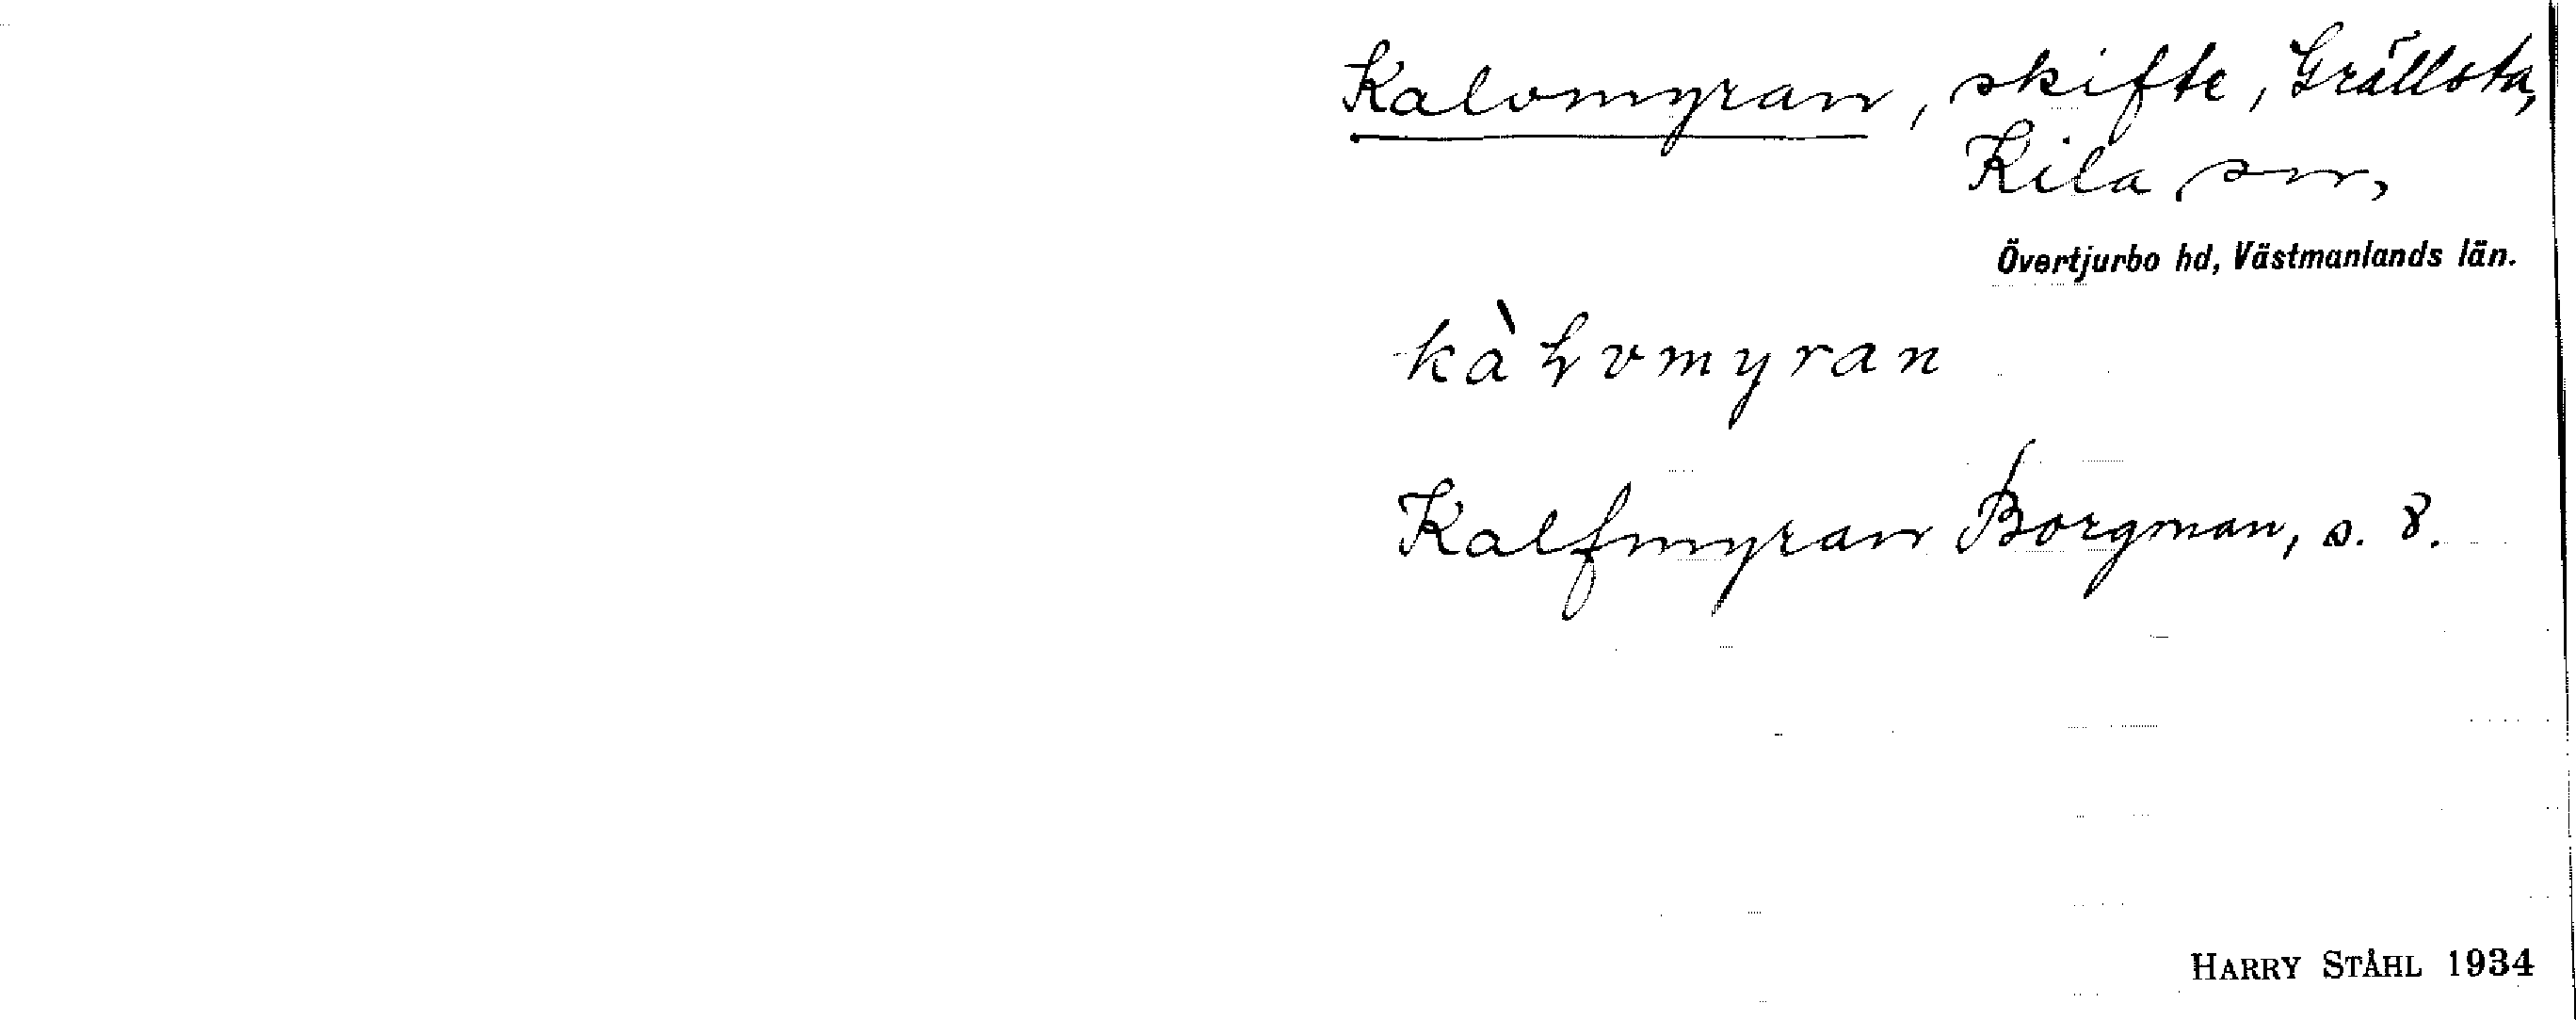 Kalvmyran, skifte, Grällsta,
Kila sn,
Övertjurbo hd, Västmanlands län.
kàɫvmyran
Kalfmyran Borgman, s. 8.
HARRY STÅHL 1934